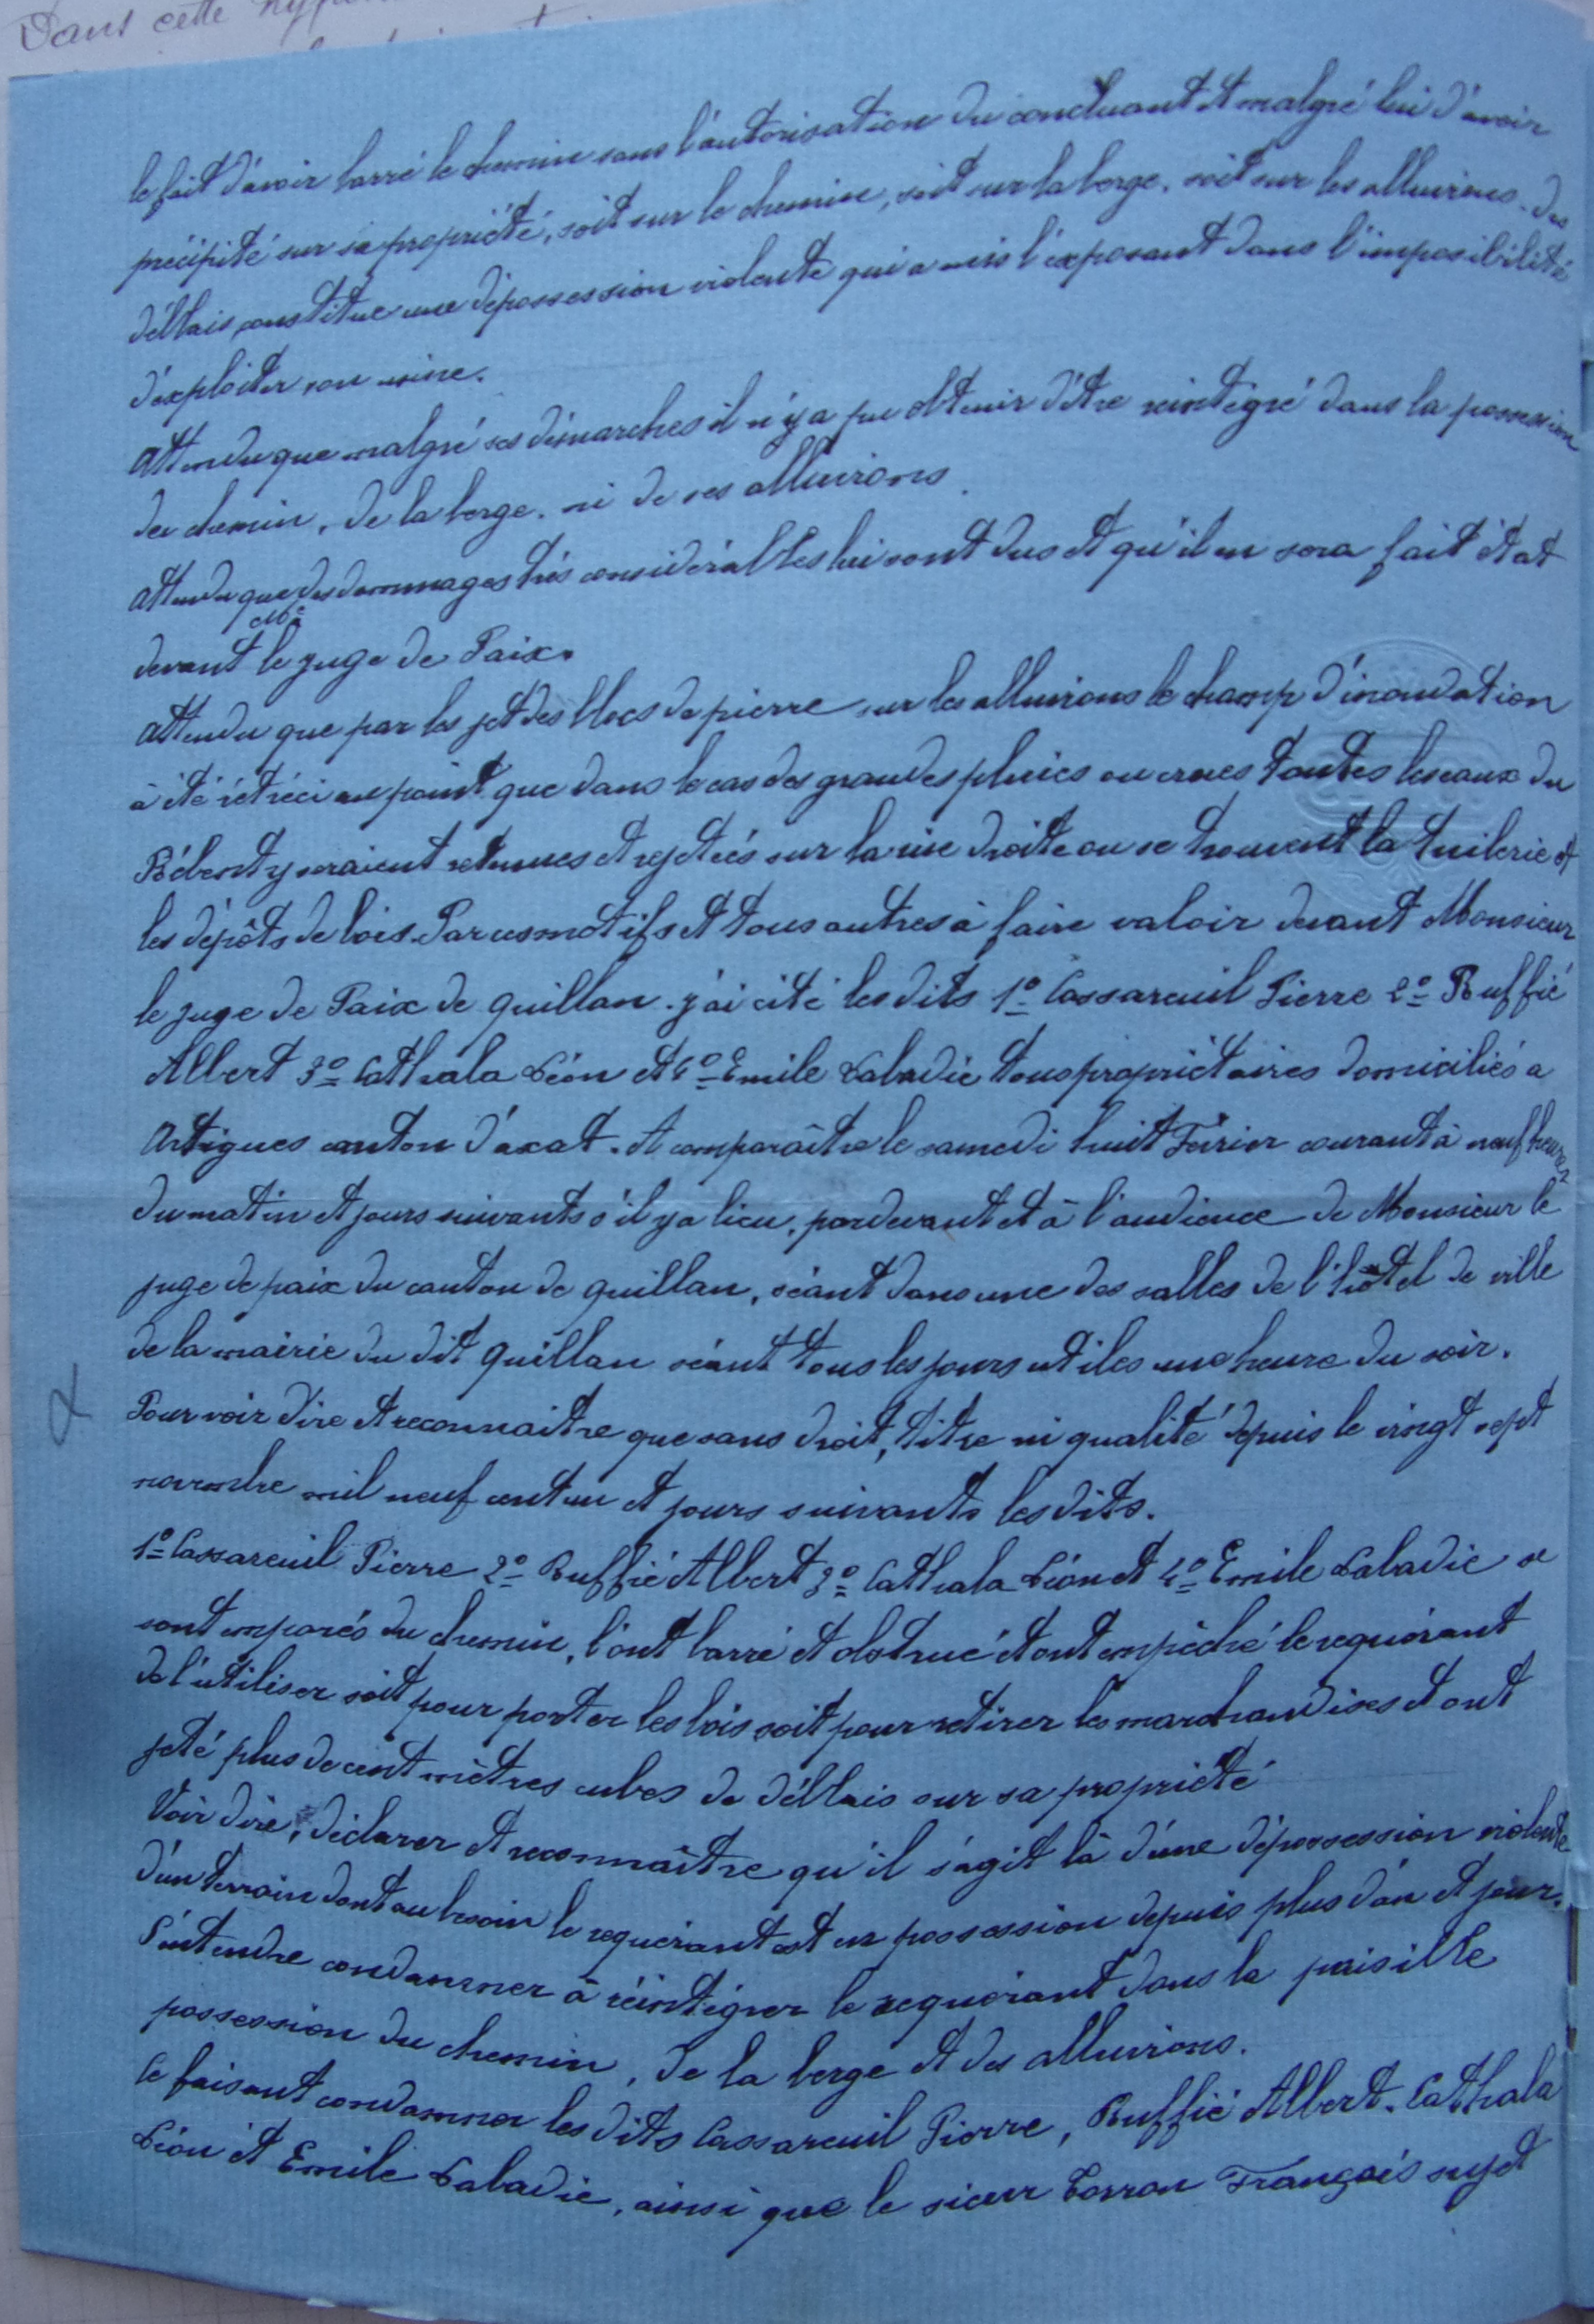 Dans cette
le fait d'avoir barré le chemin sans l'autorisation du concluant et malgré lui d'avoir
précipité sur sa propriété, soit sur le chemin, soit sur la berge, soit sur les alluvions. des
déblais, constitue une dépossession violente qui a mis l'exposant dans l'imposibilité
d'exploiter son usine.
Attendu que malgré ses démarches il n'y a pu obtenir d'être réintégré dans la possession
du chemin, de la berge. ni de ses alluvions.
Attendu que des dommages très considérables lui sont dus et qu'il en sera fait état
devant le juge de Paix.
Attendu que par les jet des blocs de pierre sur les alluvions le champ d'inondation
à été rétréci au point que dans le cas des grandes pluies ou crues toutes les eaux du
Rébenty seraient retenues et rejetées sur la rive droite ou se trouvent la tuilerie et
les dépôts de bois. Par ces motifs et tous autres à faire valoir devant Monsieur
le juge de Paix de Quillan. j'ai cité les dits 1º Cassareuil Pierre 2º Ruffié
Albert 3º Cathala Léon et 4º Emile Labadie tous propriétaires domiciliés a
Artigues canton d'axat. A comparaître le samedi huit Février courant à neuf heures
du matin et jours suivants s'il y a lieu, pardevant et à l'audience de Monsieur le
juge de paix du canton de Quillan, séant dans une des salles de l'hôtel de ville
de la mairie du dit Quillan séant tous les jours utiles une heure du soir.
Pour voir dire et reconnaitre que sans droit, titre ni qualité depuis le vingt sept
novembre mil neuf cent un et jours suivants les dits.
1º Cassareuil Pierre 2º Ruffié Albert 3º Cathala Léon et 4º Emile Labadie se
sont emparés du chemin, l'ont barré et obstrué et ont empêché le requérant
de l'utiliser soit pour porter les bois soit pour retirer les marchandises et ont
jeté plus de cent mètres cubes de déblais sur sa propriété
Voir dire, déclarer et reconnaître qu'il s'agit là d'une dépossession violente
d'un terrain dont au besoin le requérant est en possession depuis plus d'an et jour.
S'entendre condamner à réintégrer le requérant dans la paisible
possession du chemin, de la berge et des alluvions.
Ce faisant condamner les dits Cassareuil Pierre, Ruffié Albert. Cathala
Léon et Emile Labadie, ainsi que le sieur Torron Français sujet